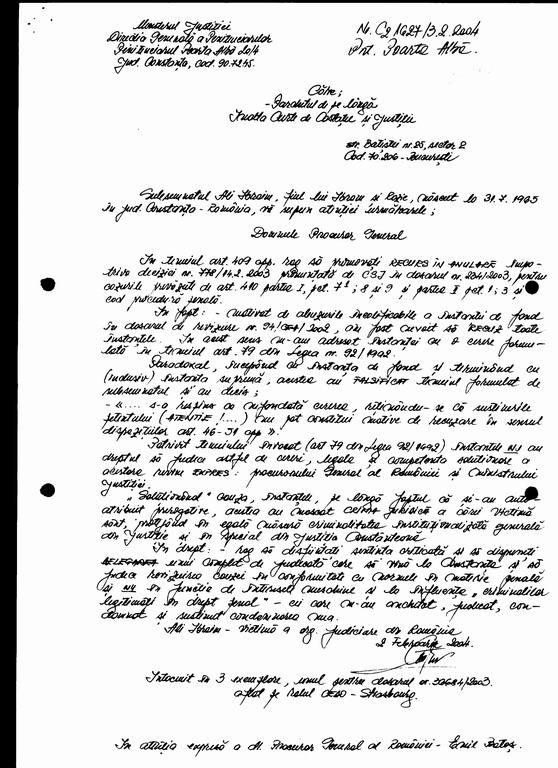 Ministerul Justiției
Direcția Generală a Penitenciarelor
Penitenciarul Poarta Albă 2014
Jud. Constanța, Cod. 907245.
Nr. C2 1627/3.2.2004
Pnt. Poarta Albă.
Către;
- Parchetul de pe lângă
Înalta Curte de Casație și Justiție
str. Batiștei nr. 25, sector 2
Cod. 70.206 - București
Subsemnatul Ali Ibraim, fiul lui Ibram și, născut la 31.7.1965
în jud. Constanța - România, vă supun atenției următoarele;
Domnule Procuror General
În temeiul art. 409 cpp. rog să promovați RECURS ÎN ANULARE împo-
triva deciziei nr. 778/14.2.2003 pronunțată de CSJ în dosarul nr. 234/2003, pentru
cazurile prevăzute de art. 410 partea I, pct. 7¹; 8 și 9 și partea II pct. 1; 3 și
cod procedură penală.
În fapt: - motivat de abuzurile incalificabile a instanței de fond
în dosarul de revizuire nr. 94/2002, am fost nevoit să RECUZ toate
instanțele. În acest sens m-am adresat instanței cu o cerere formu-
lată în temeiul art. 79 din Legea nr. 92/1992.
Paradoxal, începând de instanța de fond și terminând cu
(inclusiv) instanța supremă, acestea au FALSIFICAT temeiul formulat de
subsemnatul și au decis;
- «.... s-a respins ca nefondată cererea, reținându-se că susținerile
petentului (ATENȚIE !....) nu pot constitui motive de recuzare în sensul
dispozițiilor art. 46-51 cpp ».
Potrivit temeiului invocat (art 79 din Legea 92/1992) instanțele NU au
dreptul să judece astfel de cereri, legala și competenta soluționare a
acestora revine EXPRES: procurorului General al României și Ministrului
Justiției.
„Soluționând" cauza, instanțele, pe lângă faptul că și-au auto-
atribuit prerogative, acestea au juridică a cărei victimă
sunt, protejând în egală măsură criminalitatea instituționalizată generală
din justiție și în special din justiția Constănțeană.
În drept: - rog să desființați sentința criticată și să dispuneți
DELEGAREA unui complet de judecată care să vină la Constanța și să
judece revizuirea cauzei în conformitate cu normele în materie penală
și NU în funcție de interese meschine și la influența „criminalilor
legitimați în drept penal" - cei care m-au anchetat, judecat, con-
damnat și susținut condamnarea mea.
Ali Ibraim - victimă a org. judiciare din România
2 Februarie 2004.
Întocmit în 3 exemplare, unul pentru dosarul nr. 32684/2003.
aflat pe rolul CEDO - Strasbourg.
În atenția expresă a dl. Procuror General al României - Emil